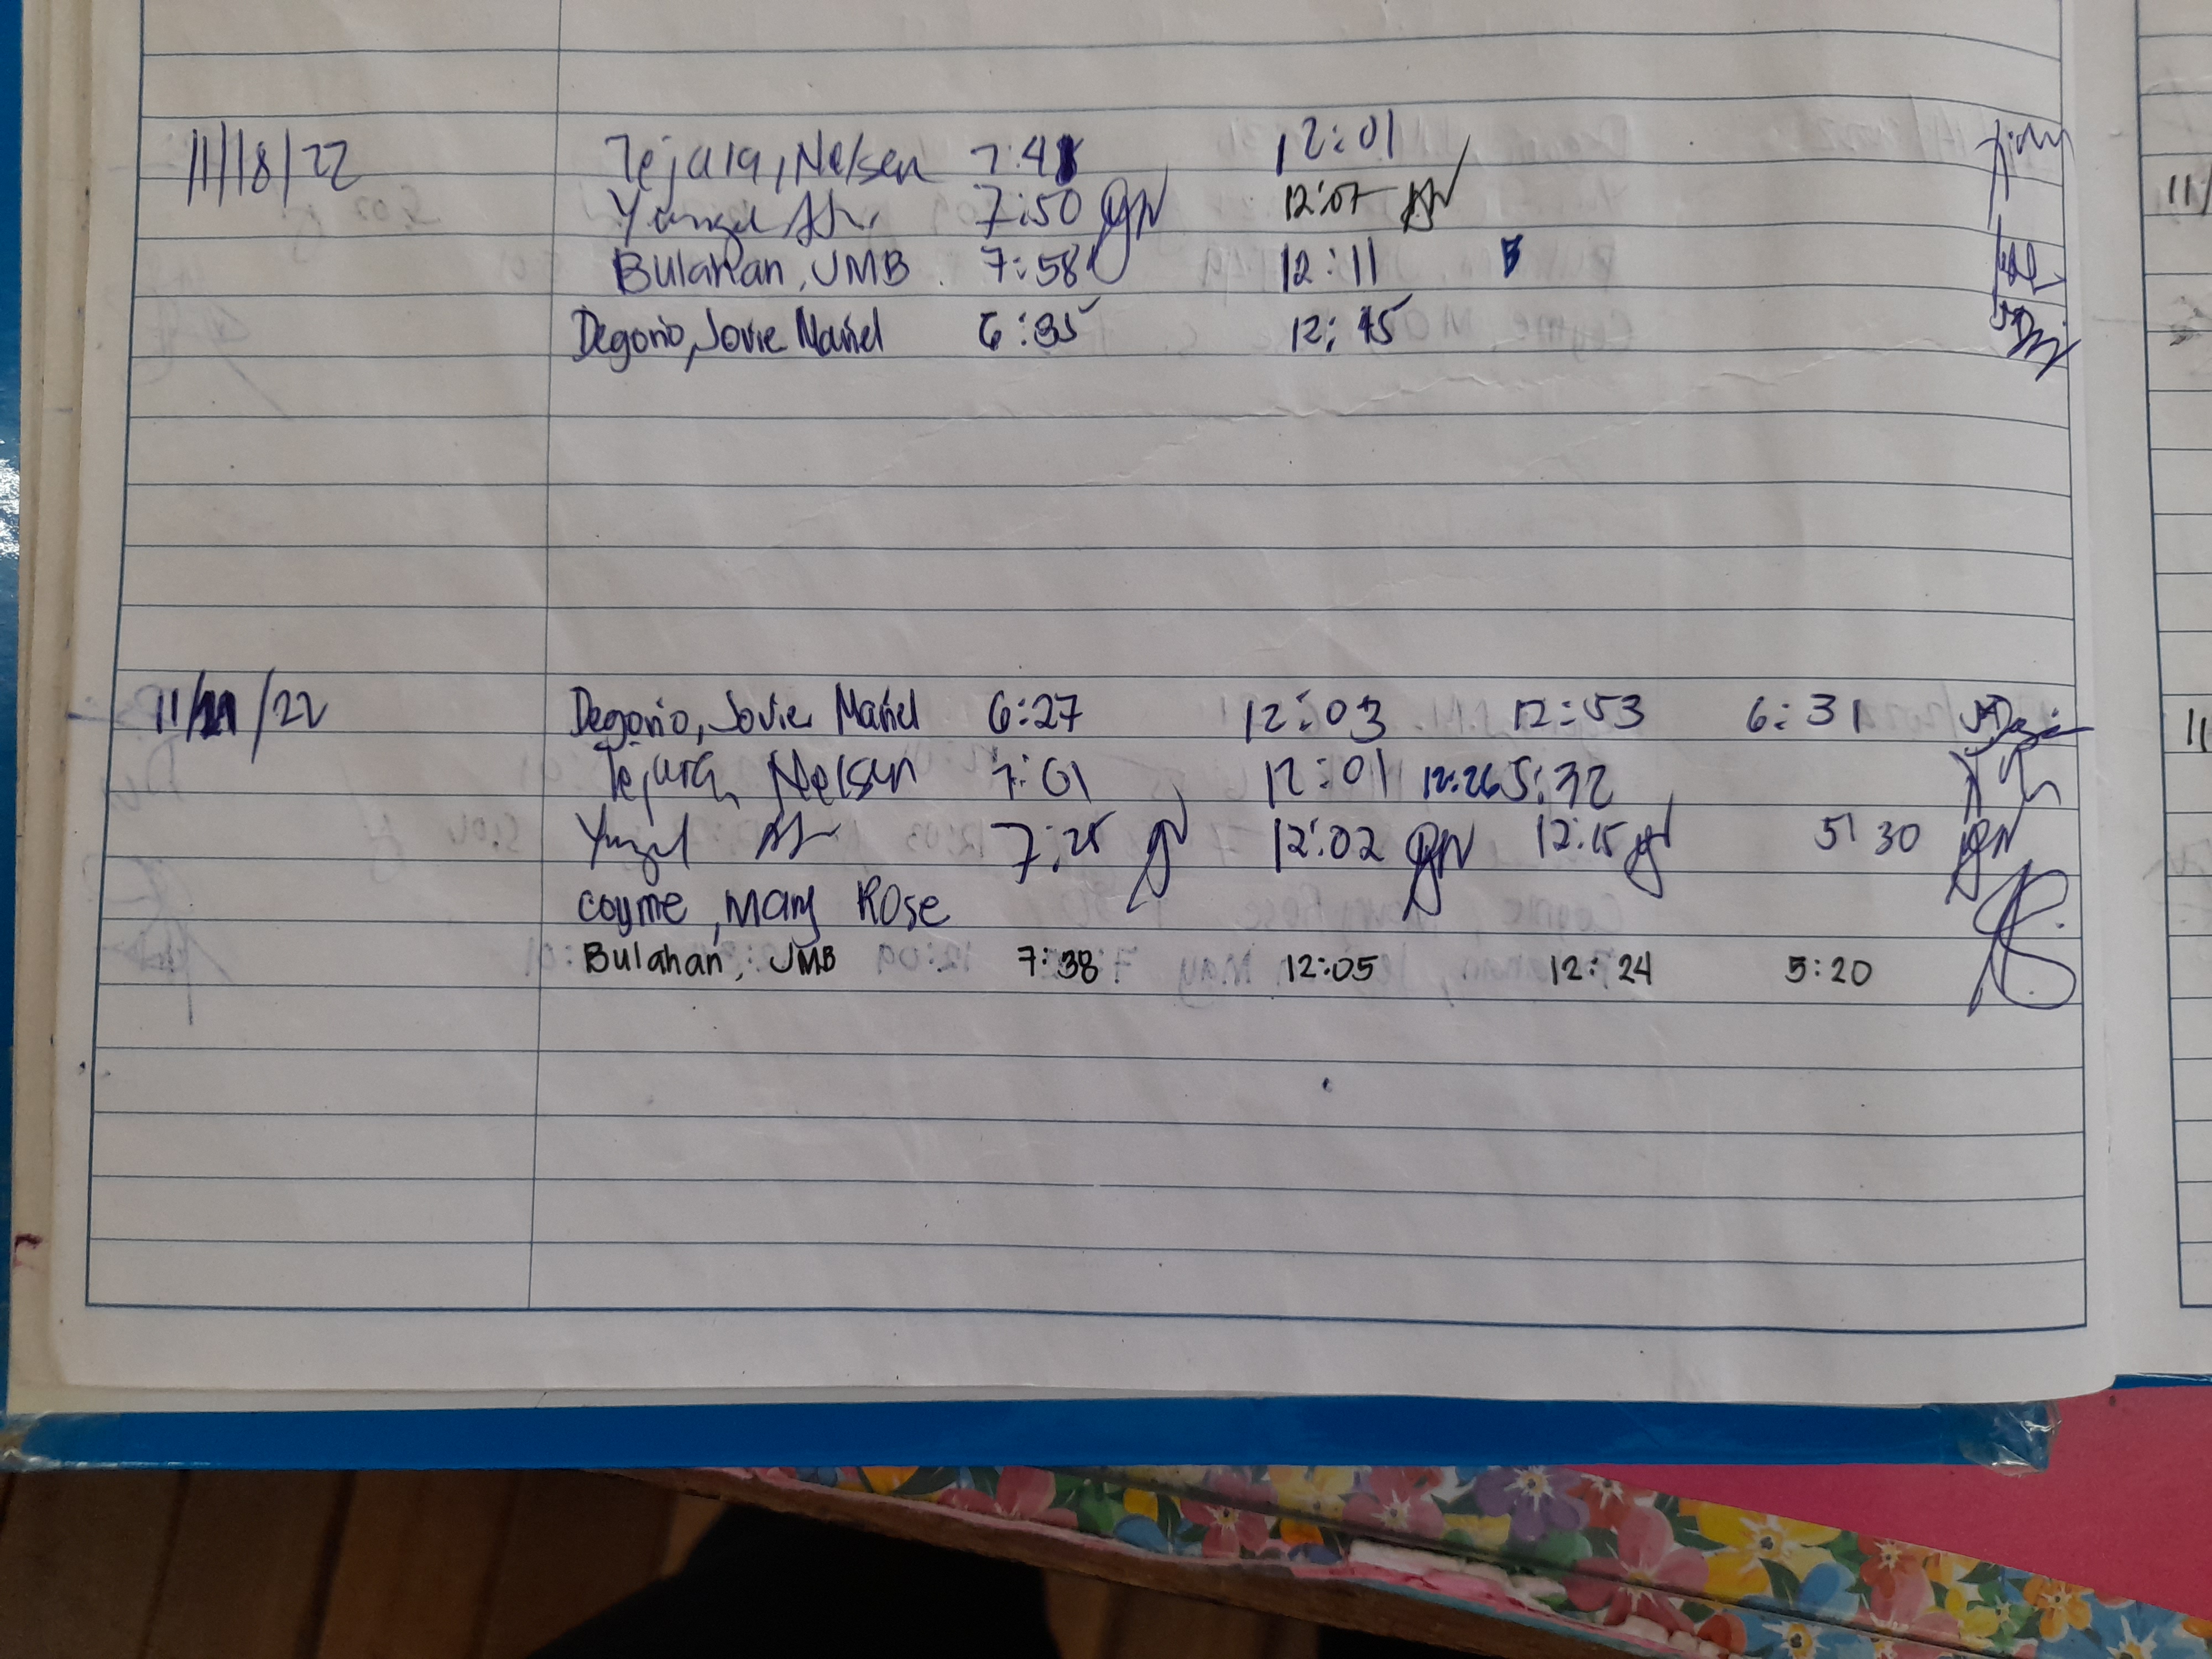 11/18/22 Tejara, Nelsen 7:48 12:01
7:50 12:07
Bulahan, JMB 7:58 12:11
Degorio, Jovie Mariel 6:35 12:45
11/21/22 Degorio, Jovie Mariel 6:27 12:03 12:53 6:31
Tejara, Nelsen 7:01 12:01 12:26 5:32
7:25 12:02 12:15 5:30
Coyme, Mary Rose
Bulahan, JMB 7:38 12:05 12:24 5:20
11/
11